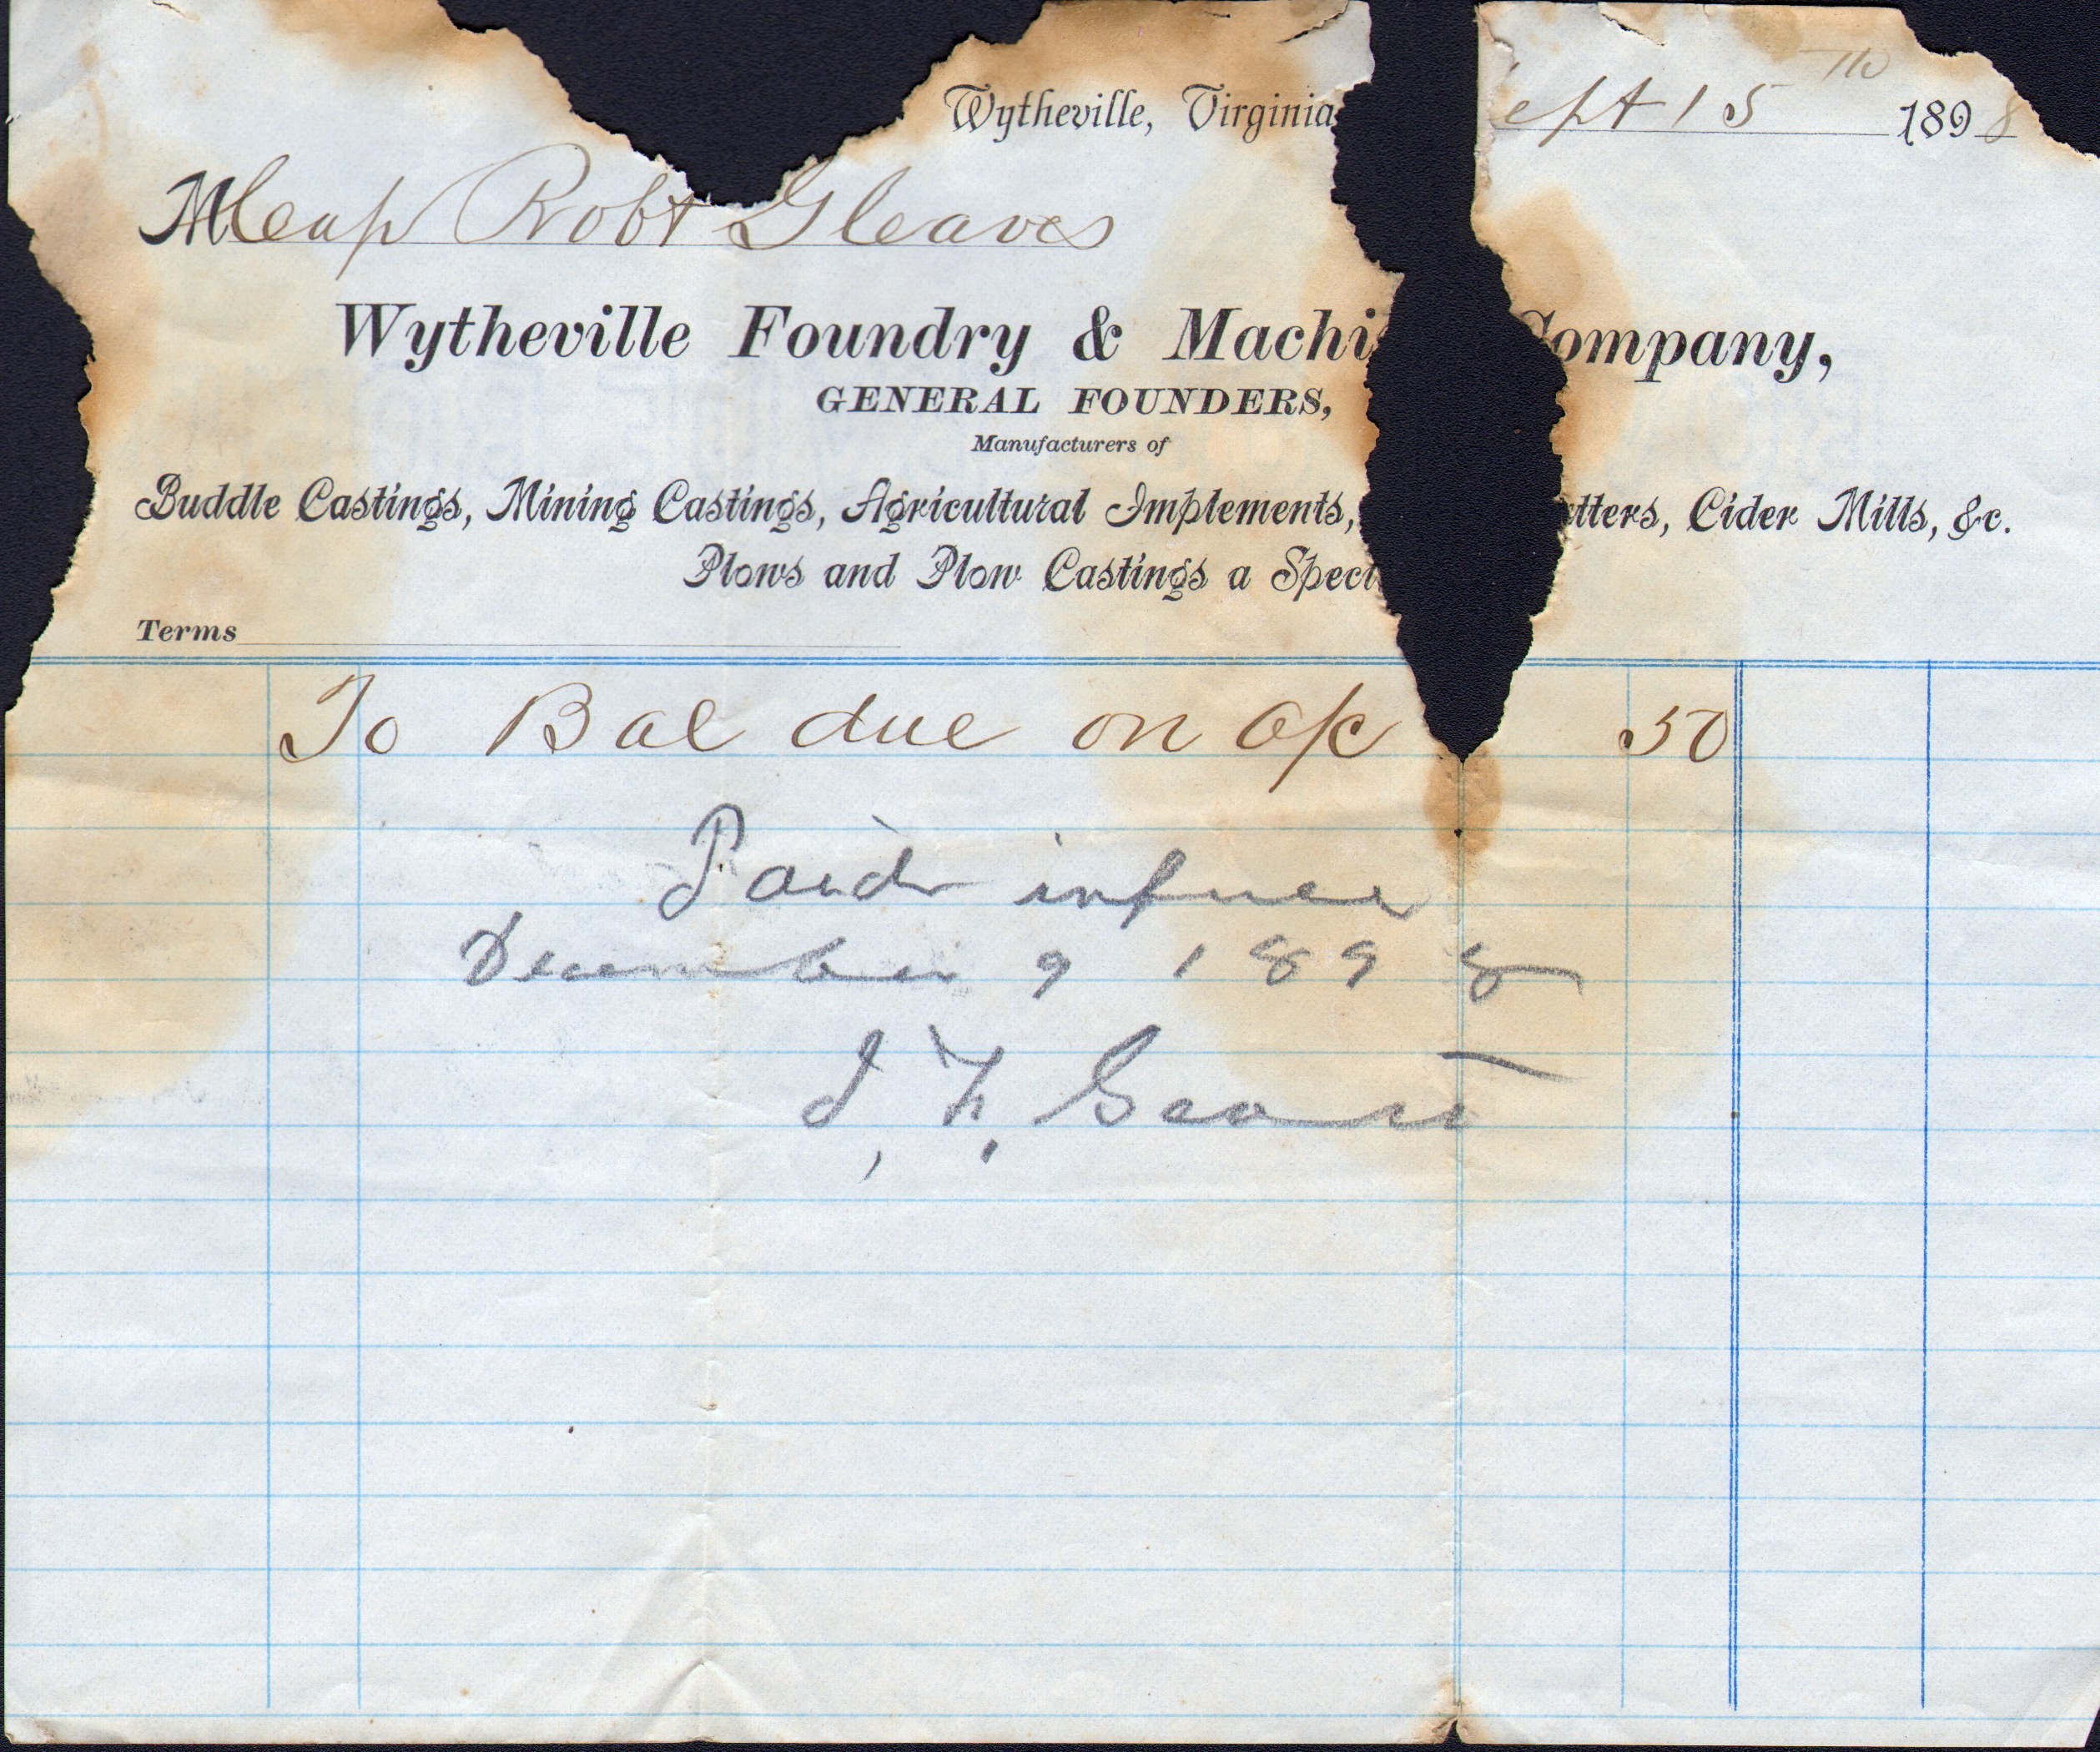 Wytheville, Virginia ept 15th 1898
M Cap Robt Gleaves
Wytheville Foundry & Machi ompany,
GENERAL FOUNDERS,
Manufacturers of
Buddle Castings, Mining Castings, Agricultural Implements, tters, Cider Mills, &c.
Plows and Plow Castings a Speci
Terms
To Bal due on a/c 50
Paid in full
December 9 1898